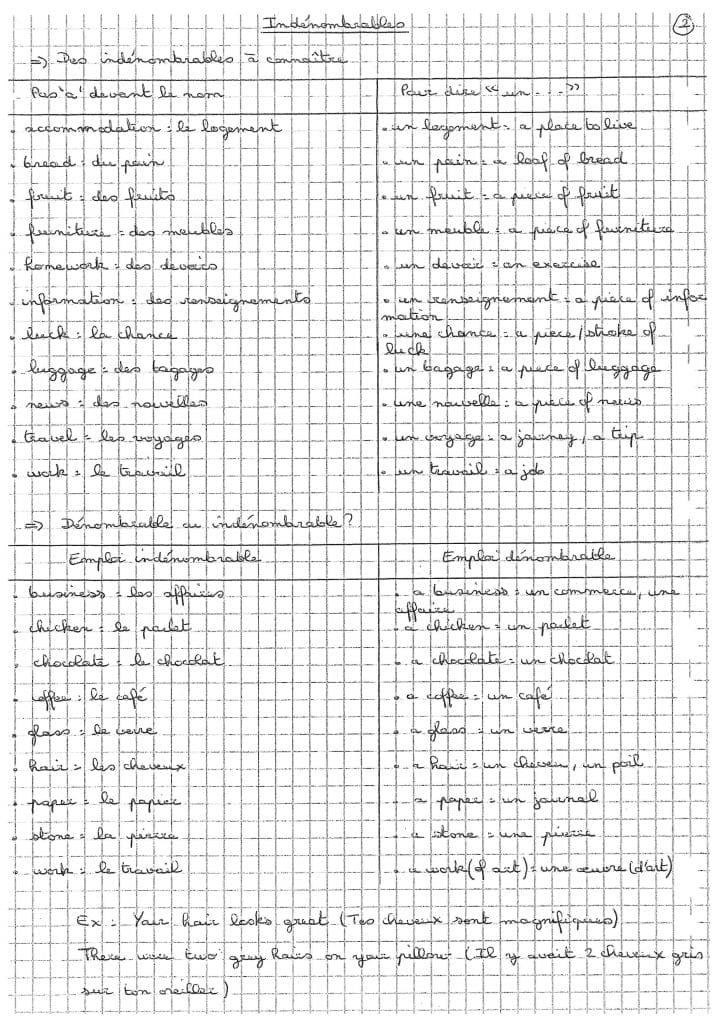 Indénombrables
2
=> Des indénombrables à connaître
Pas 'a' devant le nom
Pour dire « un . . . »
. accommodation : le logement
. un logement = a place to live
. bread : du pain
. un pain = a loaf of bread
. fruit = des fruits
. un fruit = a piece of fruit
. furniture = des meubles
. un meuble = a piece of furniture
. homework = des devoirs
. un devoir = an exercise
. information = des renseignements
. un renseignement = a piece of infor
mation
. luck : la chance
. une chance = a piece/stroke of
luck
. luggage = des bagages
. un bagage = a piece of luggage
. news = des nouvelles
. une nouvelle = a piece of news
. travel = les voyages
. un voyage = a journey, a trip
. work = le travail
. un travail = a job
=> Dénombrable ou indénombrable ?
Emploi indénombrable
Emploi dénombrable
. business = les affaires
. a business = un commerce, une
affaire
. chicken = le poulet
. a chicken = un poulet
. chocolate = le chocolat
. a chocolate = un chocolat
. coffee : le café
. a coffee = un café
. glass = le verre
. a glass = un verre
. hair = les cheveux
. a hair = un cheveu, un poil
. paper = le papier
a paper = un journal
. stone = la pierre
. a stone = une pierre
. work = le travail
. a work (of art) = une œuvre (d'art)
Ex : Your hair looks great (Tes cheveux sont magnifiques)
There were two gray hairs on your pillow (Il y avait 2 cheveux gris
sur ton oreiller)